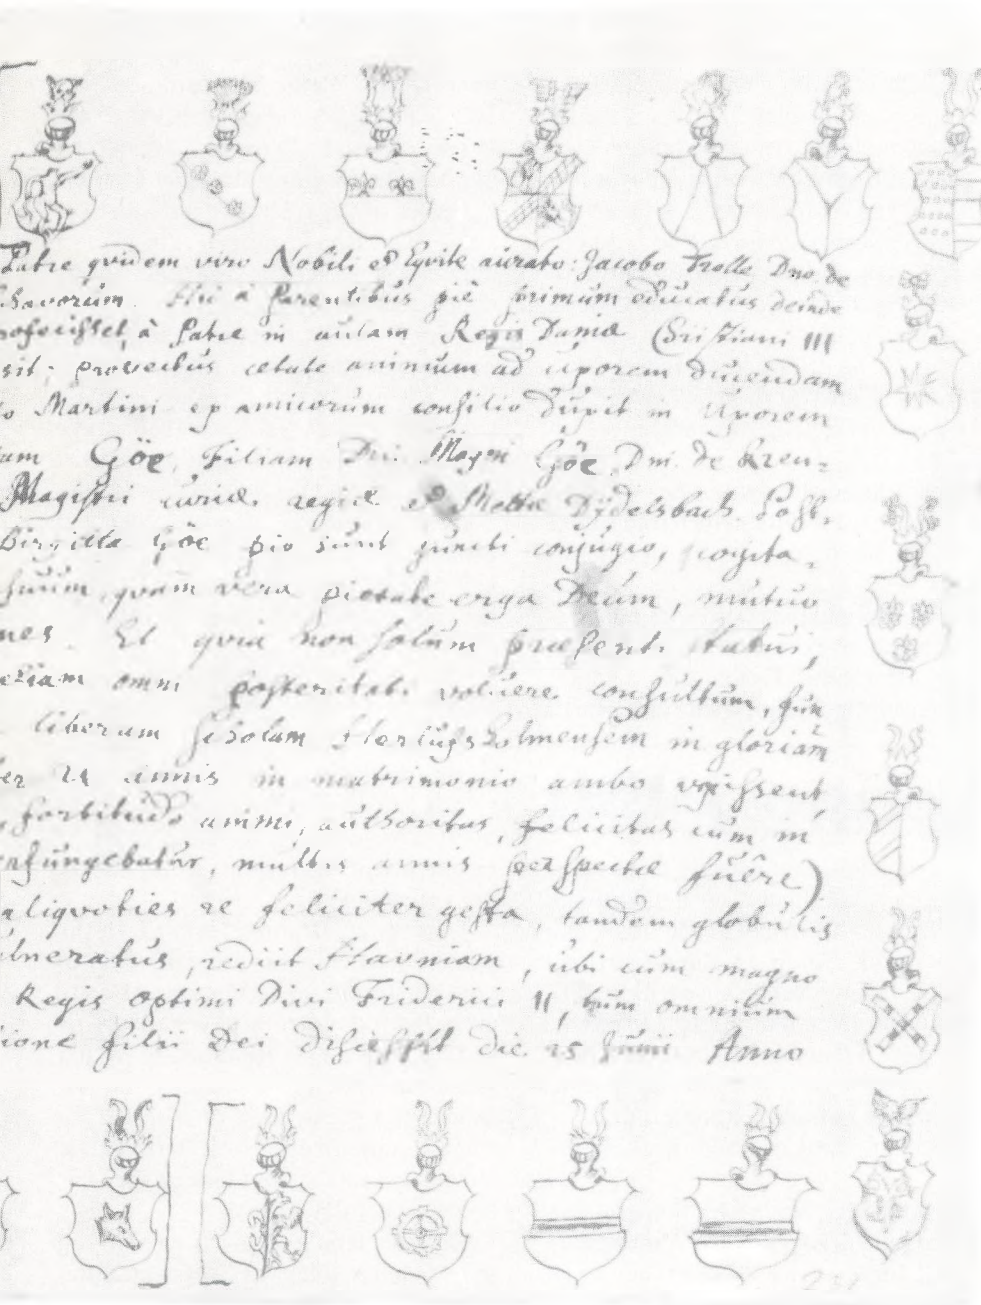 Patre quidem viro Nobili et Equite aurato Jacobo Trolle Dno de
havorum à Parentibus piè primum educatus deinde
à Patre in aulam Regis Daniæ Christiani III
sit; provectus ætate animum ad uxorem ducendam
Martini et amicorum consilio duxit in Uxorem
am Göe, Filiam Dni Göe, Dni. de Kren-
Magistri curiæ regiæ et Mettæ Dydelsbach.
Birgitta Göe pio sunt juncti conjugio,
suum, quam vera pietate erga Deum, mutuo
nes. Et quia non solum præsenti statui,
etiam omni posteritati voluere consultum, fun
liberam scholam Herlufsholmensem in gloriam
er annis in matrimonio ambo vixissent
fortitudo animi, authoritas, felicitas cum in
erfungebatur, multis annis perspectæ fuêre)
aliquoties re feliciter gesta, tandem globulis
ulneratus, rediit Havniam, ubi cum magno
Regis optimi Divi Friderici II, tum omnium
ione filii Dei discessit die 25 Junii Anno